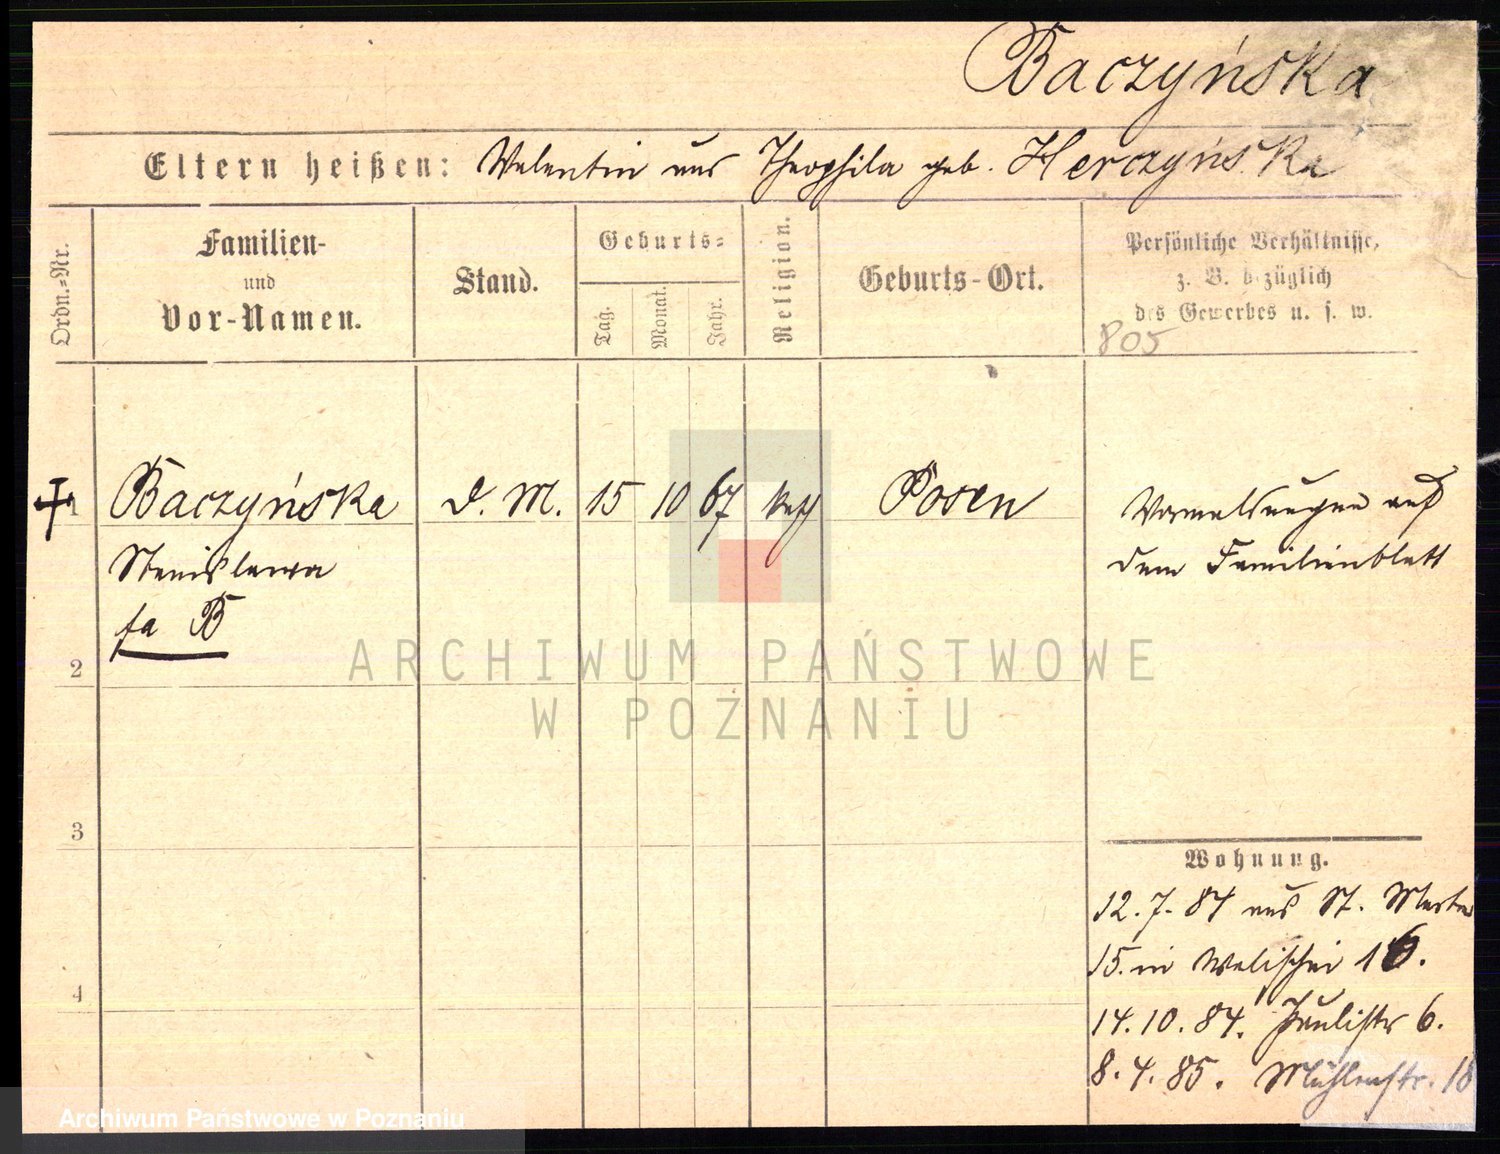 Baczyńska
Eltern heißen: Valentin und Theophila geb. Herczyńska
Ordn.-Nr.
Familien-
und
Vor-Namen.
Stand.
Geburts-
Tag.
Monat.
Jahr.
Religion.
Geburts-Ort.
Persönliche Verhältnisse,
z. B. bezüglich
des Gewerbes u. s. w.
805
1 Baczyńska d. M. 15 10 67 kath Posen
Stanislawa
fa B
2
3
4
Vormeldungen auf
dem Familienblatt
Wohnung.
12.7.84 aus St. Martin
15. in Wallischei 16.
14.10.84. Paulistr 6.
8.4.85. Mühlenstr. 18
ARCHIWUM PAŃSTWOWE
W POZNANIU
Archiwum Państwowe w Poznaniu